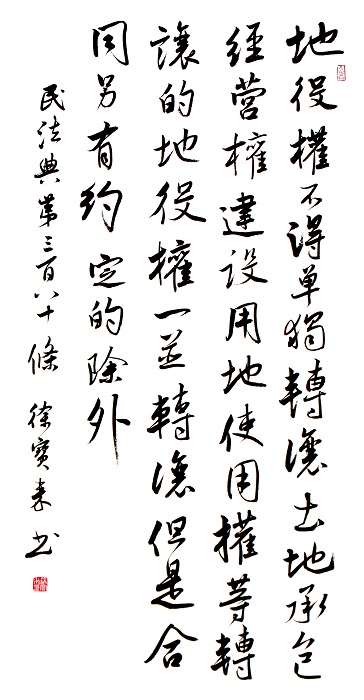 地役權不得單獨轉讓土地承包
經营權建設用地使用權等轉
讓的地役權一並轉讓但是合
同另有約定的除外
民法典第三百八十條 徐寶来书